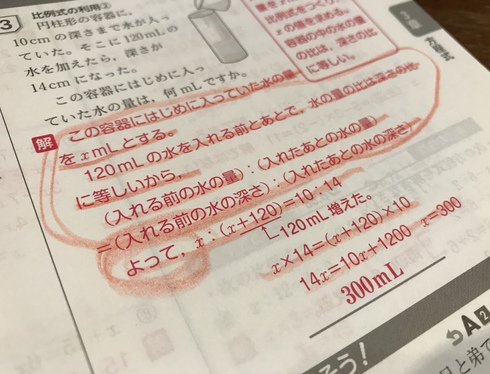 3 比例式の利用②
円柱形の容器に,
10cmの深さまで水が入っ
ていた。そこに120mLの
水を加えたら,深さが
14cmになった。
この容器にはじめに入っ
ていた水の量は,何mLですか。
比例式をつくり,
xの値を求める。
容器の中の水の量
の比は,深さの比
に等しい。
3章 方程式
解 この容器にはじめに入っていた水の量
をxmLとする。
120mLの水を入れる前とあとで,水の量の比は深さの比
に等しいから,
(入れる前の水の量):(入れたあとの水の量)
=(入れる前の水の深さ):(入れたあとの水の深さ)
よって, x:(x+120)=10:14
120mL増えた。
x×14=(x+120)×10
14x=10x+1200 x=300
300mL
そう!
A2